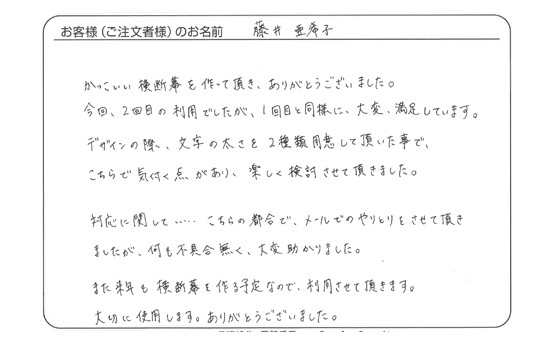 お客様(ご注文者様)のお名前 藤井 亜希子
かっこいい横断幕を作って頂き、ありがとうございました。
今回、2回目の利用でしたが、1回目と同様に、大変、満足しています。
デザインの際、文字の太さを2種類用意して頂いた事で、
こちらで気付く点があり、楽しく検討させて頂きました。
対応に関して…… こちらの都合で、メールでのやりとりをさせて頂き
ましたが、何も不具合無く、大変助かりました。
また来年も横断幕を作る予定なので、利用させて頂きます。
大切に使用します。ありがとうございました。